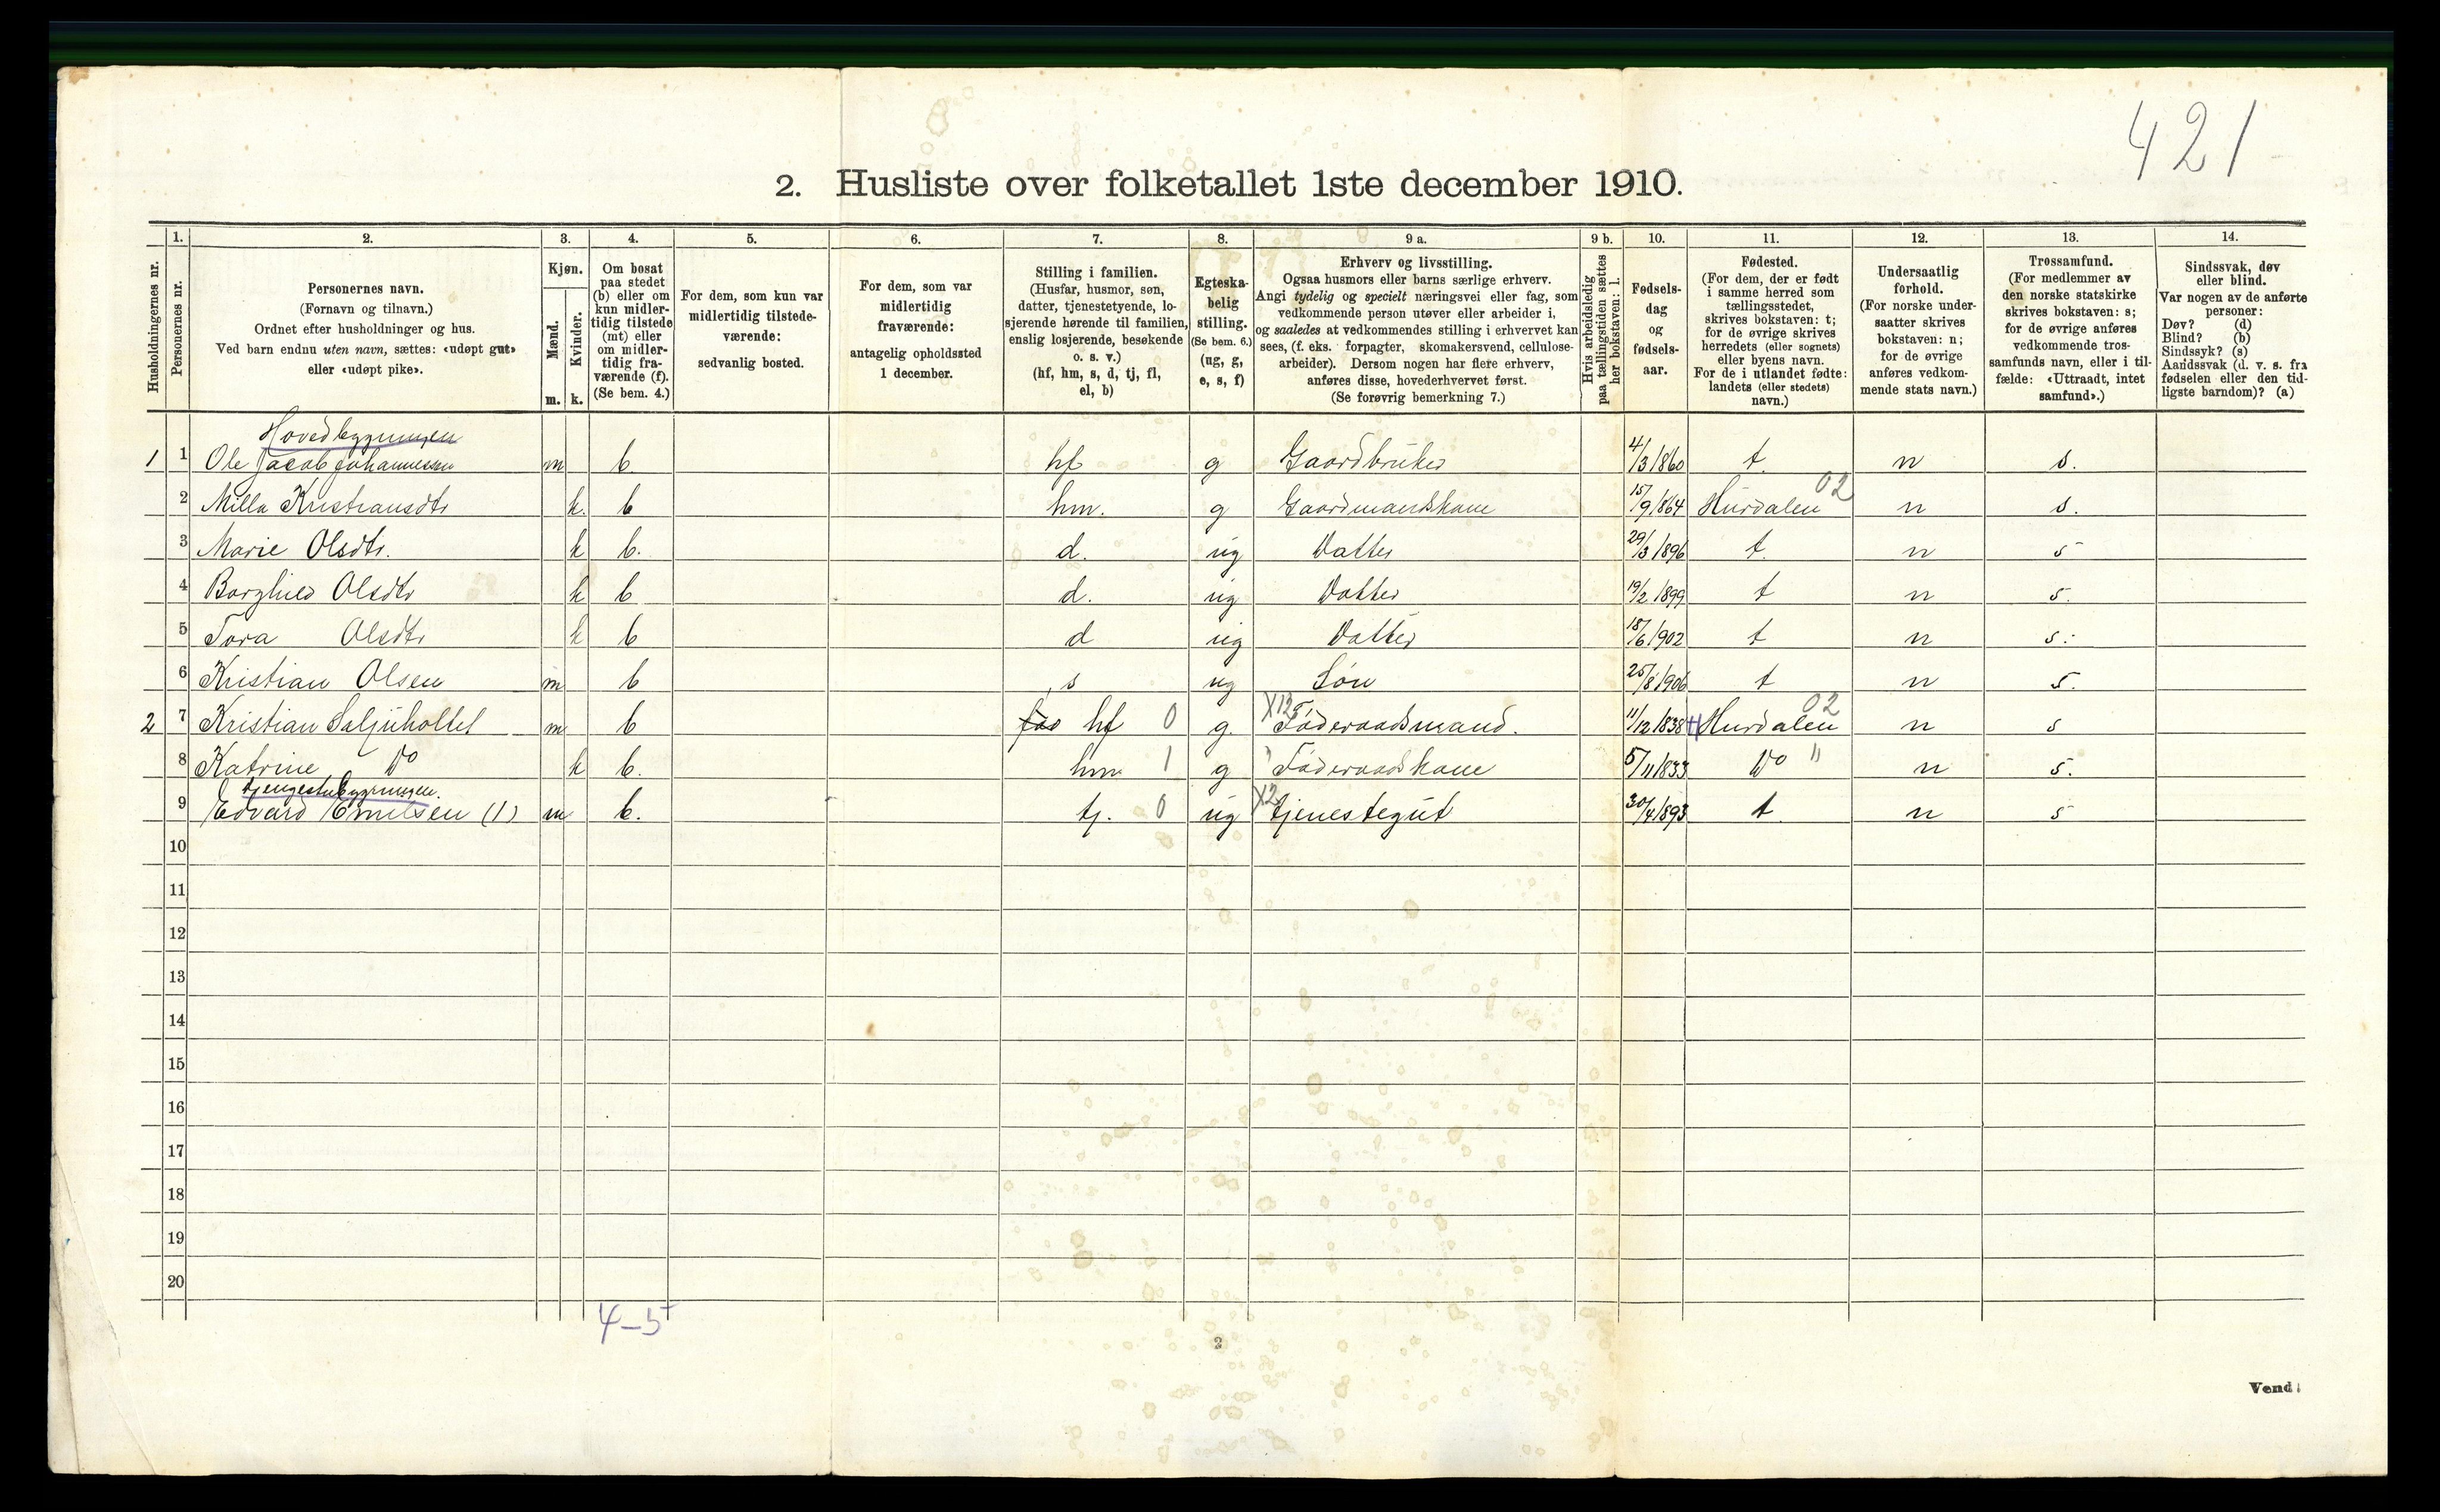 421
2. Husliste over folketallet 1ste december 1910.
Husholdningernes nr.
1. Personernes nr.
2. Personernes navn.
(Fornavn og tilnavn.)
Ordnet efter husholdninger og hus.
Ved barn endnu uten navn, sættes: «udøpt gut»
eller «udøpt pike».
3. Kjøn.
Mænd. m.
Kvinder. k.
4. Om bosat
paa stedet
(b) eller om
kun midler-
tidig tilstede
(mt) eller
om midler-
tidig fra-
værende (f).
(Se bem. 4.)
5. For dem, som kun var
midlertidig tilstede-
værende:
sedvanlig bosted.
6. For dem, som var
midlertidig
fraværende:
antagelig opholdssted
1 december.
7. Stilling i familien.
(Husfar, husmor, søn,
datter, tjenestetyende, lo-
sjerende hørende til familien,
enslig losjerende, besøkende
o. s. v.)
(hf, hm, s, d, tj, fl,
el, b)
8. Egteska-
belig
stilling.
(Se bem. 6.)
(ug, g,
e, s, f)
9 a. Erhverv og livsstilling.
Ogsaa husmors eller barns særlige erhverv.
Angi tydelig og specielt næringsvei eller fag, som
vedkommende person utøver eller arbeider i,
og saaledes at vedkommendes stilling i erhvervet kan
sees, (f. eks. forpagter, skomakersvend, cellulose-
arbeider). Dersom nogen har flere erhverv,
anføres disse, hovederhvervet først.
(Se forøvrig bemerkning 7.)
9 b. Hvis arbeidsledig
paa tællingstiden sættes
her bokstaven: l.
10. Fødsels-
dag
og
fødsels-
aar.
11. Fødested.
(For dem, der er født
i samme herred som
tællingsstedet,
skrives bokstaven: t;
for de øvrige skrives
herredets (eller sognets)
eller byens navn.
For de i utlandet fødte:
landets (eller stedets)
navn.)
12. Undersaatlig
forhold.
(For norske under-
saatter skrives
bokstaven: n;
for de øvrige
anføres vedkom-
mende stats navn.)
13. Trossamfund.
(For medlemmer av
den norske statskirke
skrives bokstaven: s;
for de øvrige anføres
vedkommende tros-
samfunds navn, eller i til-
fælde: «Uttraadt, intet
samfund».)
14. Sindssvak, døv
eller blind.
Var nogen av de anførte
personer:
Døv? (d)
Blind? (b)
Sindssyk? (s)
Aandssvak (d. v. s. fra
fødselen eller den tid-
ligste barndom)? (a)
Hovedbygningen
1 1 Ole Jacob Johannessen m b hf g Gaardbruker 4/3 1860 t. n s.
2 Milla Kristiansdtr k. b hm. g Gaardmandskone 15/9 1864 Hurdalen 02 n s.
3 Marie Olsdtr. k b. d. ug Datter 29/3 1896 t. n s
4 Borghild Olsdtr k b d. ug Datter 19/2 1899 t n s.
5 Tora Olsdtr k b d ug Datter 18/6 1902 t n s.
6 Kristian Olsen m b s ug Søn 25/8 1906 t n s.
2 7 Kristian Saljuholtet m b hf 0 g. X12 Føderaadsmand. 11/12 1838 Hurdalen 02 n s
8 Katrine Do k b. hm 1 g Føderaadskone 5/11 1833 Do " n s.
tjenestebygningen.
9 Edvard Emilsen (1) m b. tj. 0 ug X2 tjenestegut 30/4 1893 t. n s
10
11
12
13
14
15
16
17
18
19
20
4-5
2
Vend!